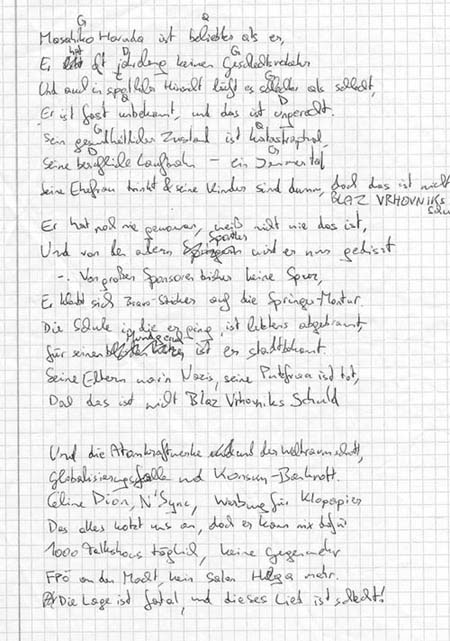 G G
Masahiko Harada ist beliebter als er,
Er hat oft jahrelang keinen Geschlechtsverkehr
Und auch in sportlicher Hinsicht läuft es schlechter als schlecht,
Er ist fast unbekannt, und das ist ungerecht.
Sein gesundheitlicher Zustand ist katastrophal,
Seine berufliche Laufbahn – ein Jammertal
Seine Ehefrau trinkt & seine Kinder sind dumm, doch das ist nicht
BLAZ VRHOVNIKS
Er hat noch nie gewonnen, weiß nicht wie das ist,
Und von den andern Springern wird er nur gedisst
-: Von großen Sponsoren bisher keine Spur,
Er klebt sich Bran-Sticker auf die Springer-Montur
Die Schule in die er ging, ist letztens abgebrannt,
für seinen Mundgeruch ist er stadtbekannt.
Seine Eltern war'n Nazis, seine Putzfrau ist tot,
Doch das ist nicht Blaz Vrhovniks Schuld
Und die Atomkraftwerke und der Weltraumschrott,
Globalisierungsfalle und Konsum-Bankrott.
Celine Dion, N'Sync, Werbung für Klopapier
Das alles kotzt uns an, doch er kann nix dafür
1000 Talkshows täglich, keine Gegenwehr
FPÖ an der Macht, kein Salon Helga mehr.
Die Lage ist fatal, und dieses Lied ist schlecht!